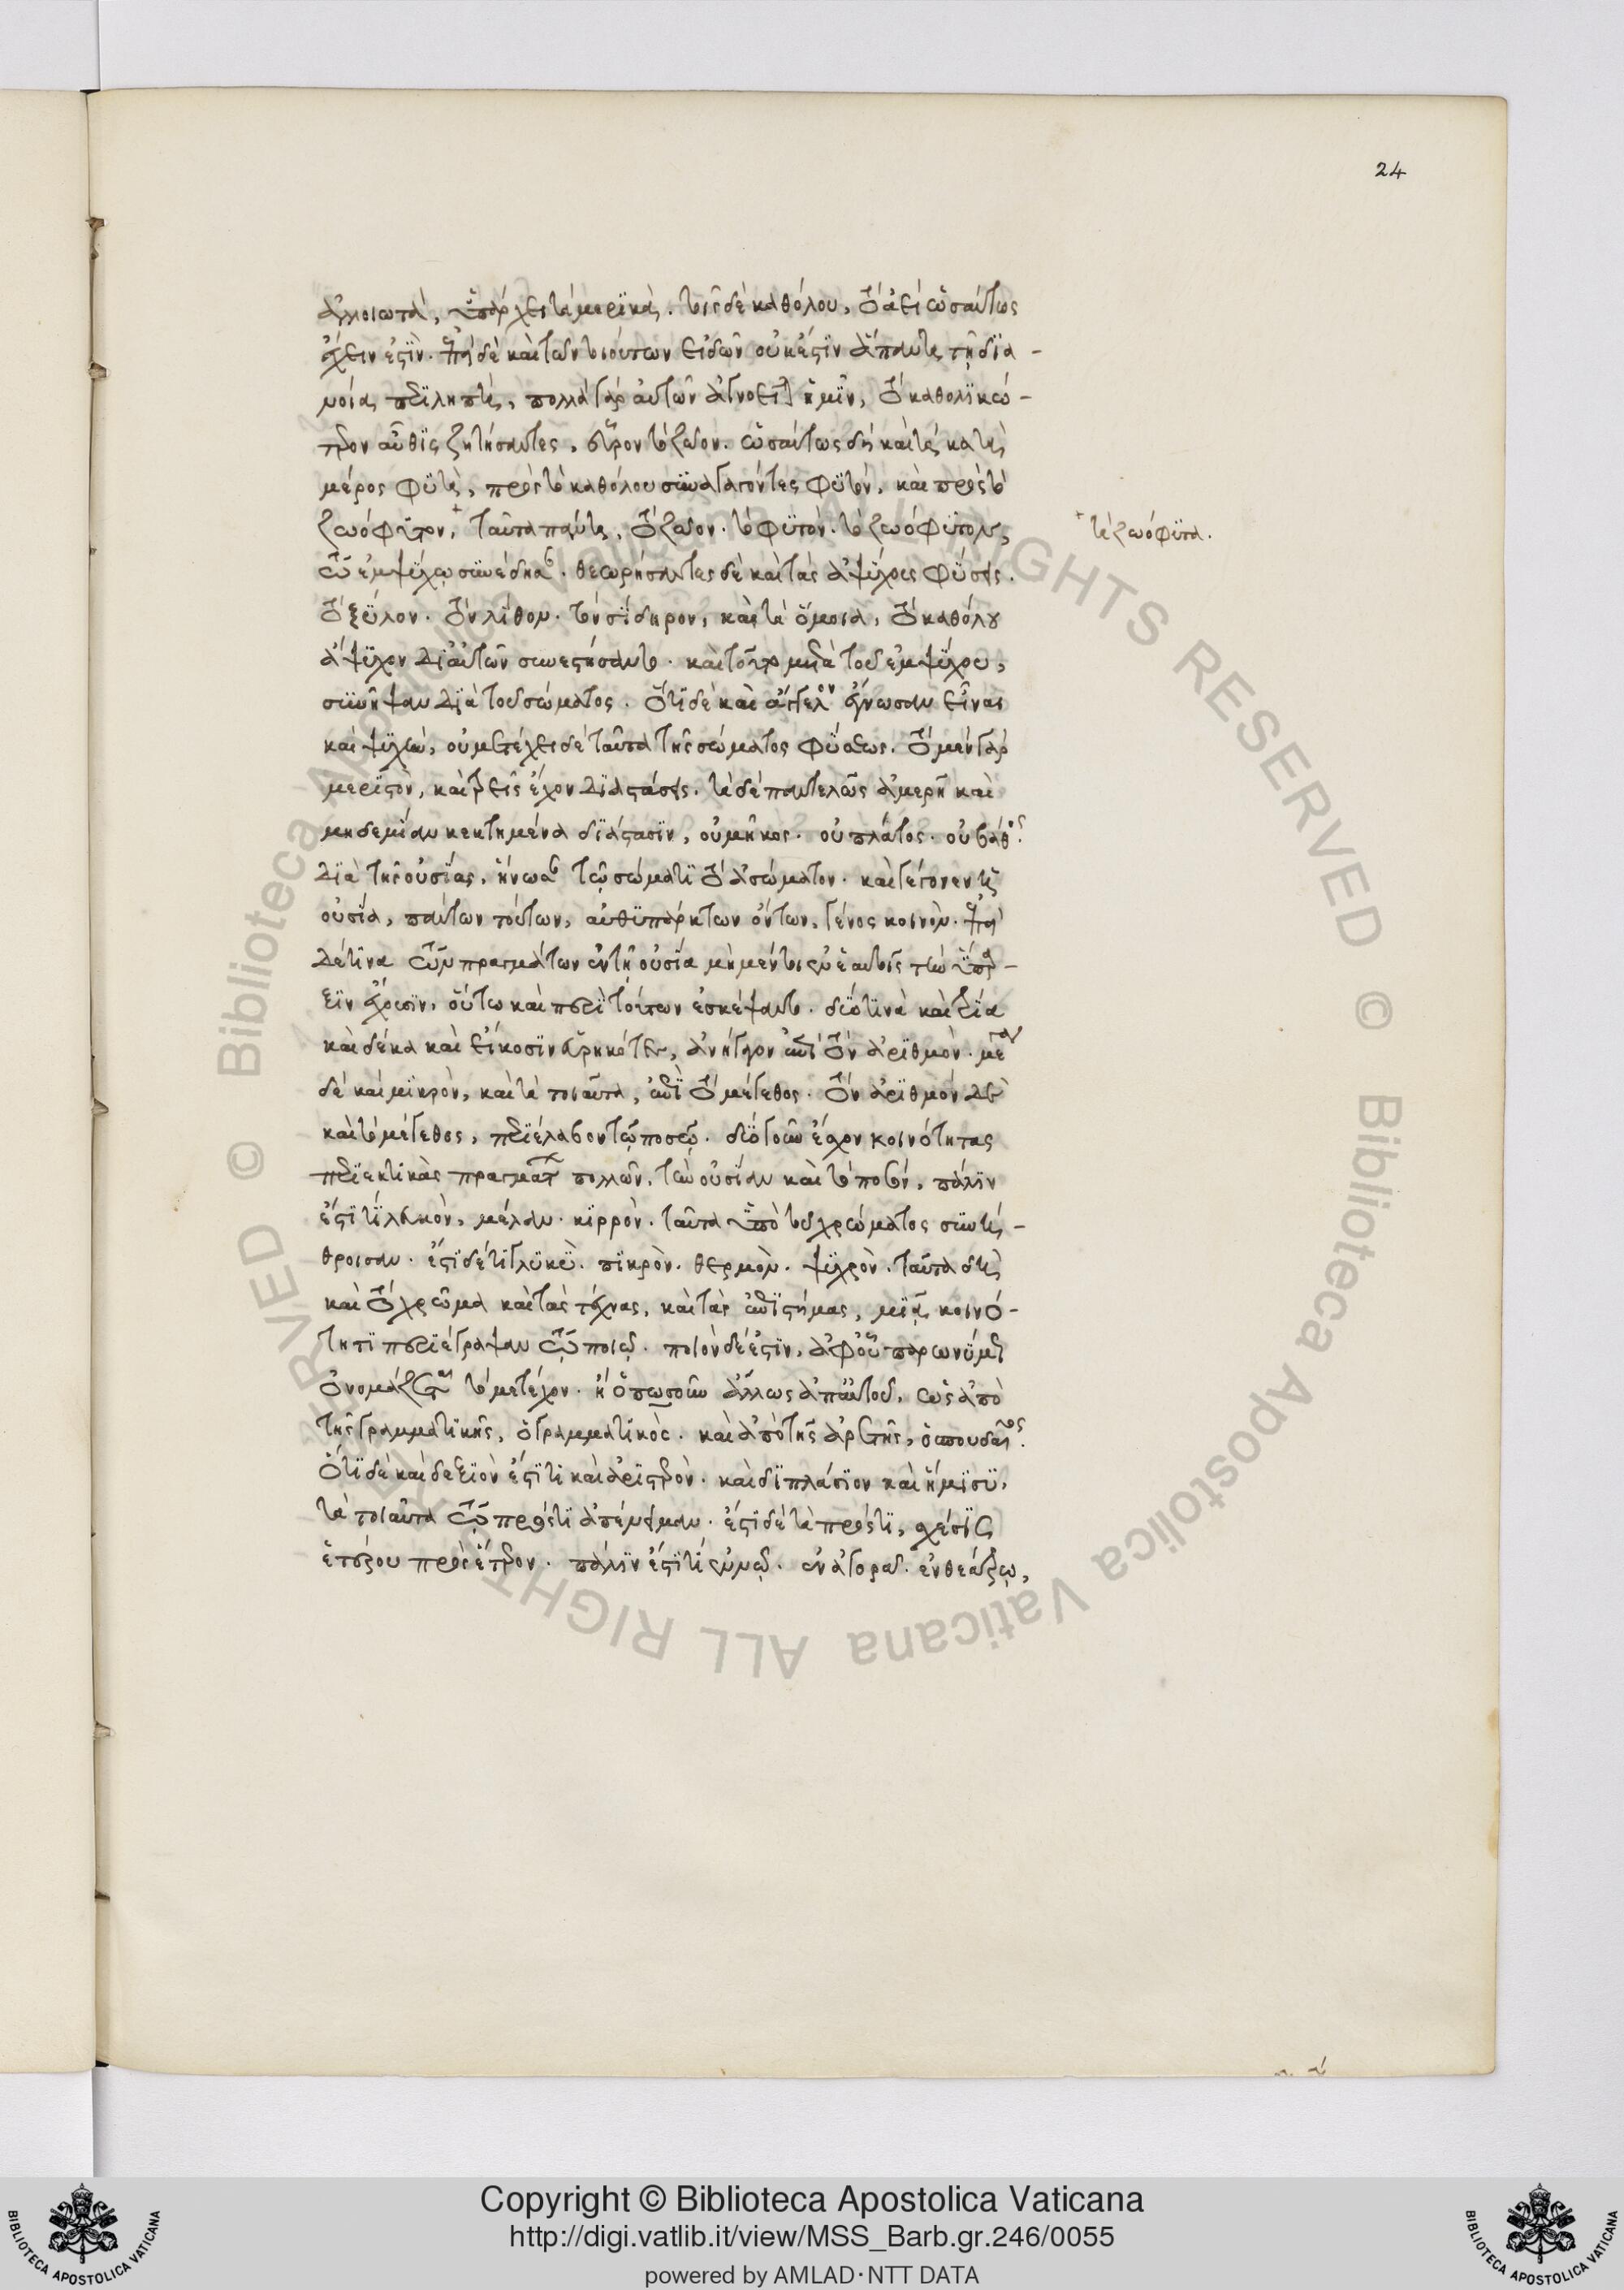 24
ἀλλοιωτὰ, ὑπάρχει τὰ μερικὰ. τοῖς δὲ καθόλου, τὸ ἀεὶ ὡσαύτως
ἔχειν ἐστὶν. ἐπεὶ δὲ καὶ τῶν τοιούτων εἰδῶν οὐκ ἔστιν ἅπαντα τῇ δια-
νοία περιληπτὰ, πολλὰ γὰρ αὐτῶν ἀγνοεῖται ἡμῖν, τὸ καθολικώ-
τερον αὖθις ζητήσαντες, εὗρον τὸ ζῶον. ὡσαύτως δὴ καὶ τὰ κατὰ
μέρος φυτὰ, πρὸς τὸ καθόλου συναγαγόντες φυτὸν, καὶ πρὸς τὸ
ζωόφυτον, ταῦτα πάντα, τὸ ζῶον. τὸ φυτὸν. τὸ ζωόφυτον,
τῶ ἐμψύχω συνέδησαν. θεωρήσαντες δὲ καὶ τὰς ἀψύχους φύσεις.
τὸ ξύλον. τὸν λίθον. τὸν σίδηρον, καὶ τὰ ὅμοια, τὸ καθόλου
ἄψυχον δι' αὐτῶν συνεστήσαντο. καὶ τοῦτο μετὰ τοῦ ἐμψύχου,
συνῆψαν διὰ τοῦ σώματος. ὅτι δὲ καὶ ἄγγελον ἔγνωσαν εἶναι
καὶ ψυχὴν, οὐ μετέχει δὲ ταῦτα τῆς σώματος φύσεως. τὸ μὲν γὰρ
μεριστὸν, καὶ τρεῖς ἔχον διαστάσεις. τὰ δὲ παντελῶς ἀμερῆ καὶ
μηδεμίαν κεκτημένα διάστασιν, οὐ μῆκος. οὐ πλάτος. οὐ βάθος.
διὰ τῆς οὐσίας, ἥνωσαν τῶ σώματι τὸ ἀσώματον. καὶ γέγονεν ἡ
οὐσία, πάντων τούτων, αὐθυπάρκτων ὄντων, γένος κοινὸν. ἐπεὶ
δέ τινα τῶν πραγμάτων ἐν τῆ οὐσία μὴ μέντοι ἐν ἑαυτοῖς τὴν ὕπαρ-
ξιν ἔχουσιν, οὕτω καὶ περὶ τούτων ἐσκέψαντο. δύο τινὰ καὶ τρία
καὶ δέκα καὶ εἴκοσιν εὑρηκότες, ἀνήγαγον ἐπὶ τὸν ἀριθμὸν. μέγα
δὲ καὶ μικρὸν, καὶ τὰ τοιαῦτα, ἐπὶ τὸ μέγεθος. τὸν ἀριθμὸν δὲ
καὶ τὸ μέγεθος, περιέλαβον τῶ ποσῶ. δύο γοῦν ἔχον κοινότητας
περιεκτικὰς πραγμάτων πολλῶν, τὴν οὐσίαν καὶ τὸ ποσὸν, πάλιν
ἔστι τὶ λευκὸν, μέλαν. κιρρὸν. ταῦτα ὑπὸ τοῦ χρώματος συνή-
θροισαν. ἔστι δέ τι γλυκὺ. πικρὸν. θερμὸν. ψυχρὸν. ταῦτα δὴ
καὶ τὸ χρῶμα καὶ τὰς τέχνας, καὶ τὰς ἐπιστήμας, μιᾷ κοινό-
τητι περιέγραψαν τῶ ποιῶ. ποιὸν δέ ἐστιν, ἀφ' οὗ παρωνύμως
ὀνομάζεται τὸ μετέχον. ἢ ὁπωσοῦν ἄλλως ἀπ' αὐτοῦ, ὡς ἀπὸ
τῆς γραμματικῆς, ὁ γραμματικὸς. καὶ ἀπὸ τῆς ἀρετῆς, ὁ σπουδαῖος.
ὅτι δὲ καὶ δεξιὸν ἔστι τι καὶ ἀριστερὸν. καὶ διπλάσιον καὶ ἥμισυ,
τὰ τοιαῦτα τῶ πρός τι ἀπένειμαν. ἔστι δὲ τὰ πρός τι, σχέσις
ἑτέρου πρὸς ἕτερον. πάλιν ἔστι τὶ ἐν ἀγορᾶ. ἐν θεάτρω,
+ τὰ ζωόφυτα.
Copyright © Biblioteca Apostolica Vaticana
http://digi.vatlib.it/view/MSS_Barb.gr.246/0055
powered by AMLAD·NTT DATA
© Biblioteca Apostolica Vaticana ALL RIGHTS RESERVED
BIBLIOTECA APOSTOLICA VATICANA
BIBLIOTECA APOSTOLICA VATICANA